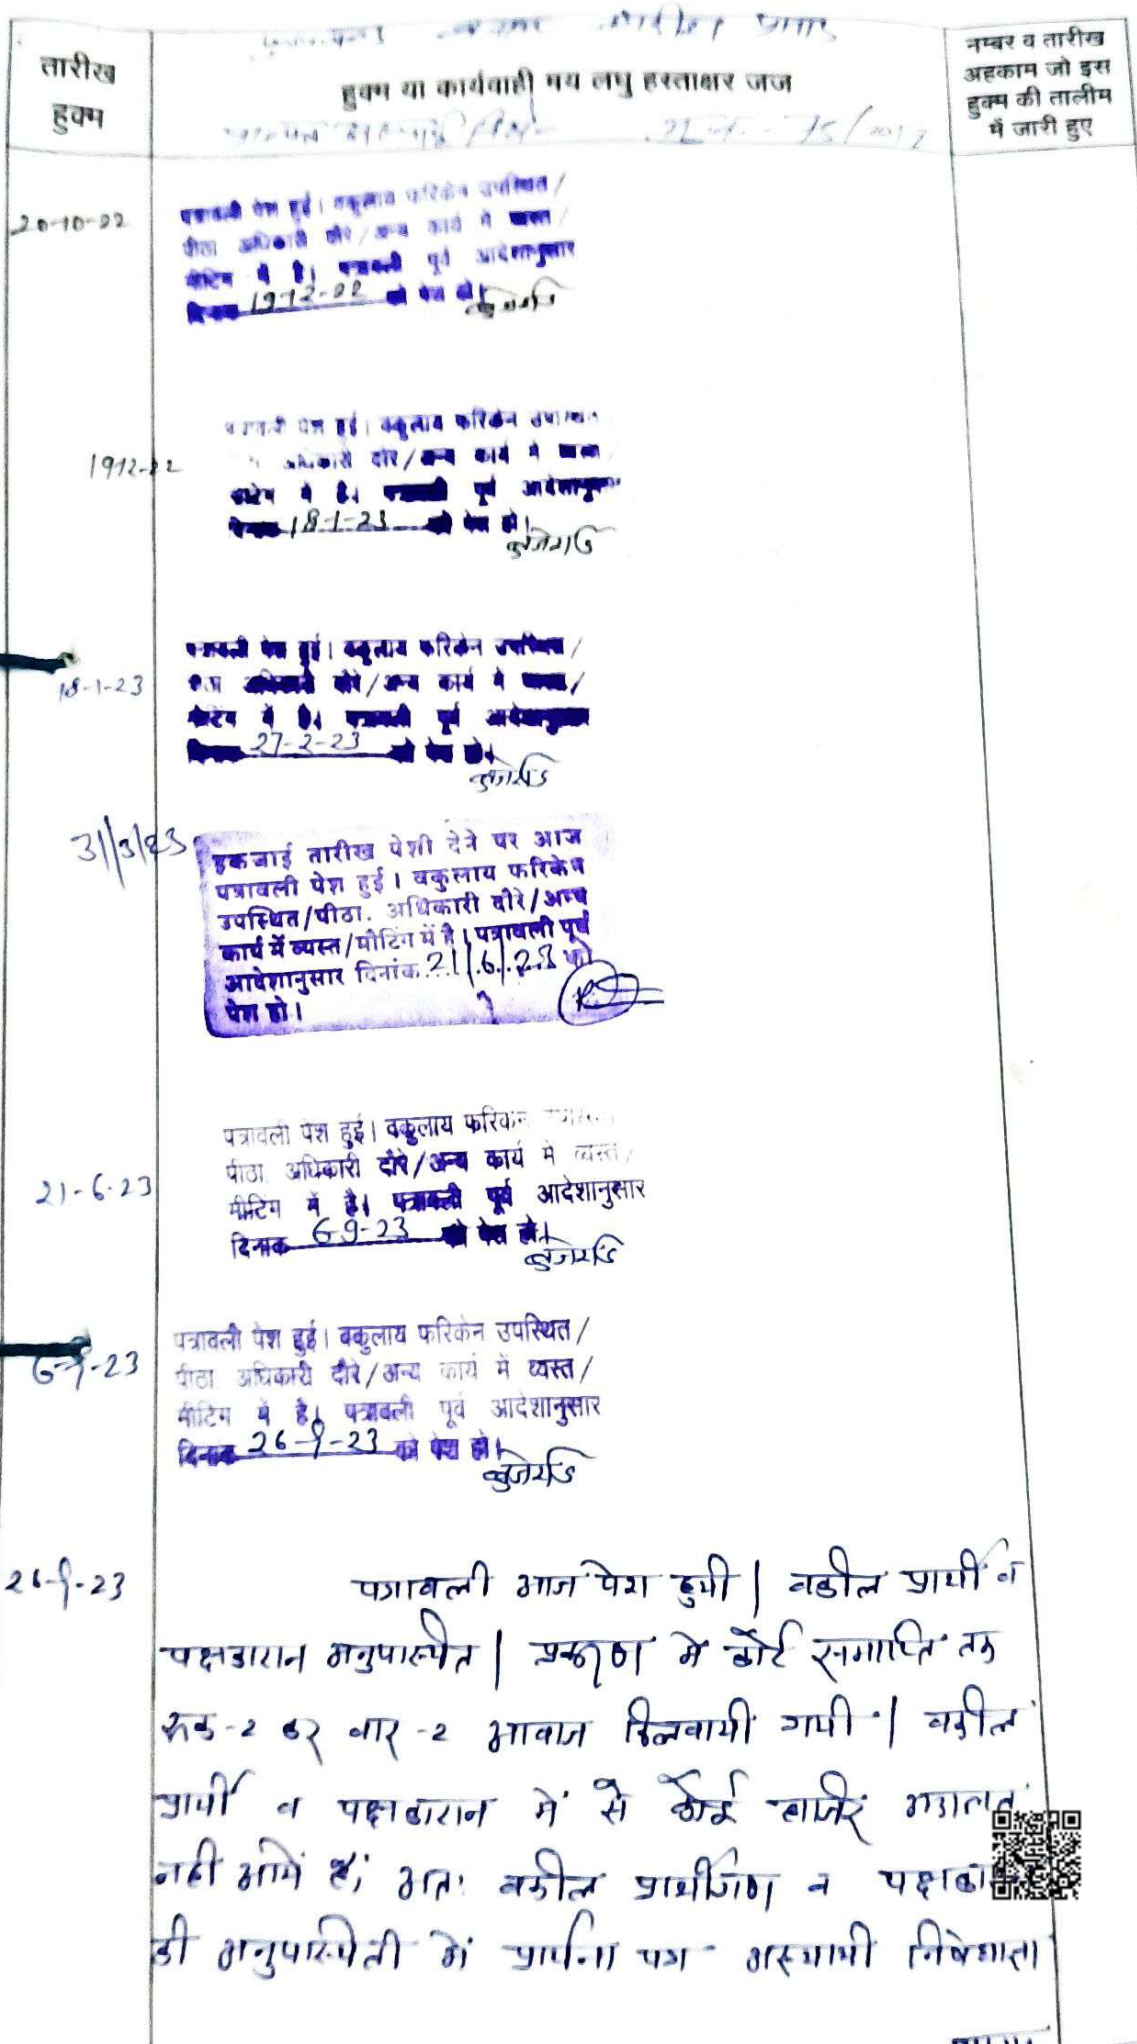 तारीख
हुक्म
हुक्म या कार्यवाही मय लघु हस्ताक्षर जज
नम्बर व तारीख
अहकाम जो इस
हुक्म की तालीम
में जारी हुए
75/2017
20-10-22
पत्रावली पेश हुई। वकुलाय फरिकेन उपस्थित/
पीठा अधिकारी दौरे/अन्य कार्य में व्यस्त/
मीटिंग में है। पत्रावली पूर्व आदेशानुसार
दिनांक 19-12-22 को पेश हो।
1912-22
पत्रावली पेश हुई। वकुलाय फरिकेन उपस्थित
अधिकारी दौरे/अन्य कार्य में व्यस्त
मीटिंग में है। पत्रावली पूर्व आदेशानुसार
दिनांक 18-1-23 को पेश हो।
18-1-23
पत्रावली पेश हुई। वकुलाय फरिकेन उपस्थित/
पीठा अधिकारी दौरे/अन्य कार्य में व्यस्त/
मीटिंग में है। पत्रावली पूर्व आदेशानुसार
दिनांक 27-2-23 को पेश हो।
31/3/23
इकजाई तारीख पेशी देने पर आज
पत्रावली पेश हुई। वकुलाय फरिकेन
उपस्थित/पीठा. अधिकारी दौरे/अन्य
कार्य में व्यस्त/मीटिंग में है। पत्रावली पूर्व
आदेशानुसार दिनांक 21/6/23 को
पेश हो।
21-6-23
पत्रावली पेश हुई। वकुलाय फरिकेन
पीठा अधिकारी दौरे/अन्य कार्य में व्यस्त/
मीटिंग में है। पत्रावली पूर्व आदेशानुसार
दिनांक 6-9-23 को पेश हो।
6-9-23
पत्रावली पेश हुई। वकुलाय फरिकेन उपस्थित/
पीठा अधिकारी दौरे/अन्य कार्य में व्यस्त/
मीटिंग में है। पत्रावली पूर्व आदेशानुसार
दिनांक 26-9-23 को पेश हो।
26-9-23
पत्रावली आज पेश हुयी | वकील प्रार्थी व
पक्षकारान अनुपास्थित | प्रकरण मे कोर्ट समाप्ति तक
रूक-2 कर बार-2 आवाज दिलवायी गयी | वकील
प्रार्थी व पक्षकारान में से कोई हाजिर अदालत
नही आये है, अतः वकील प्रार्थीगण व
की अनुपास्थिती में प्रार्थना पत्र अस्थायी निषेधाज्ञा